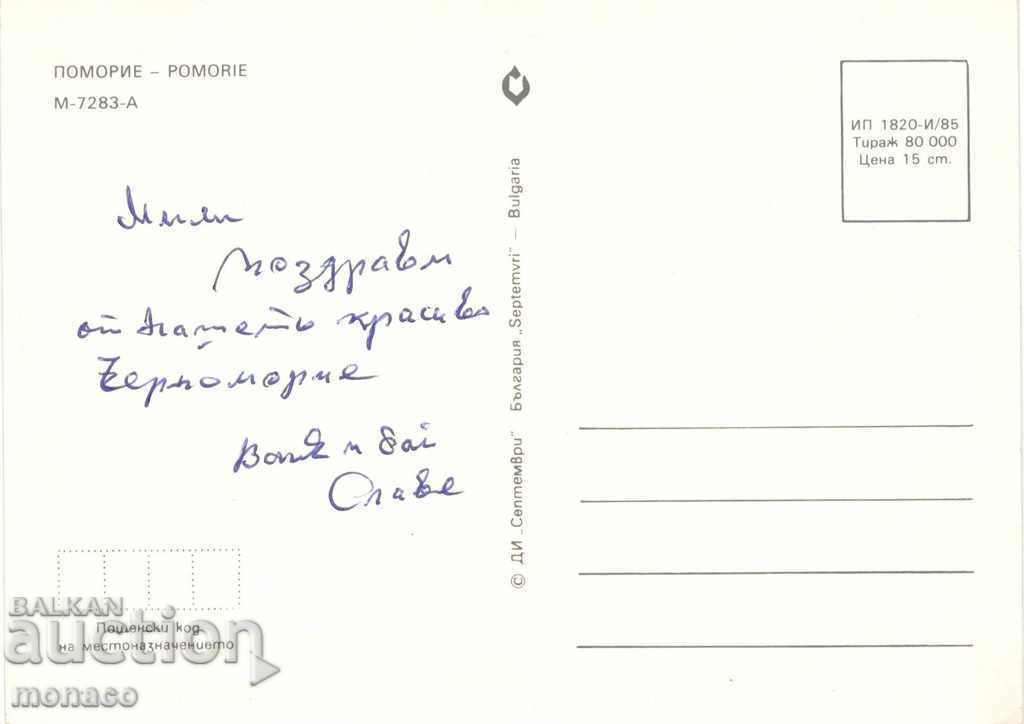 ПОМОРИЕ – POMORIE
М-7283-А
ИП 1820-И/85
Тираж 80 000
Цена 15 ст.
Мили
поздрави
от нашето красиво
Черноморие
и бай
Славе
© ДИ „Септември" България „Septemvri" — Bulgaria
Пощенски код
на местоназначението
BALKAN
auction
monaco